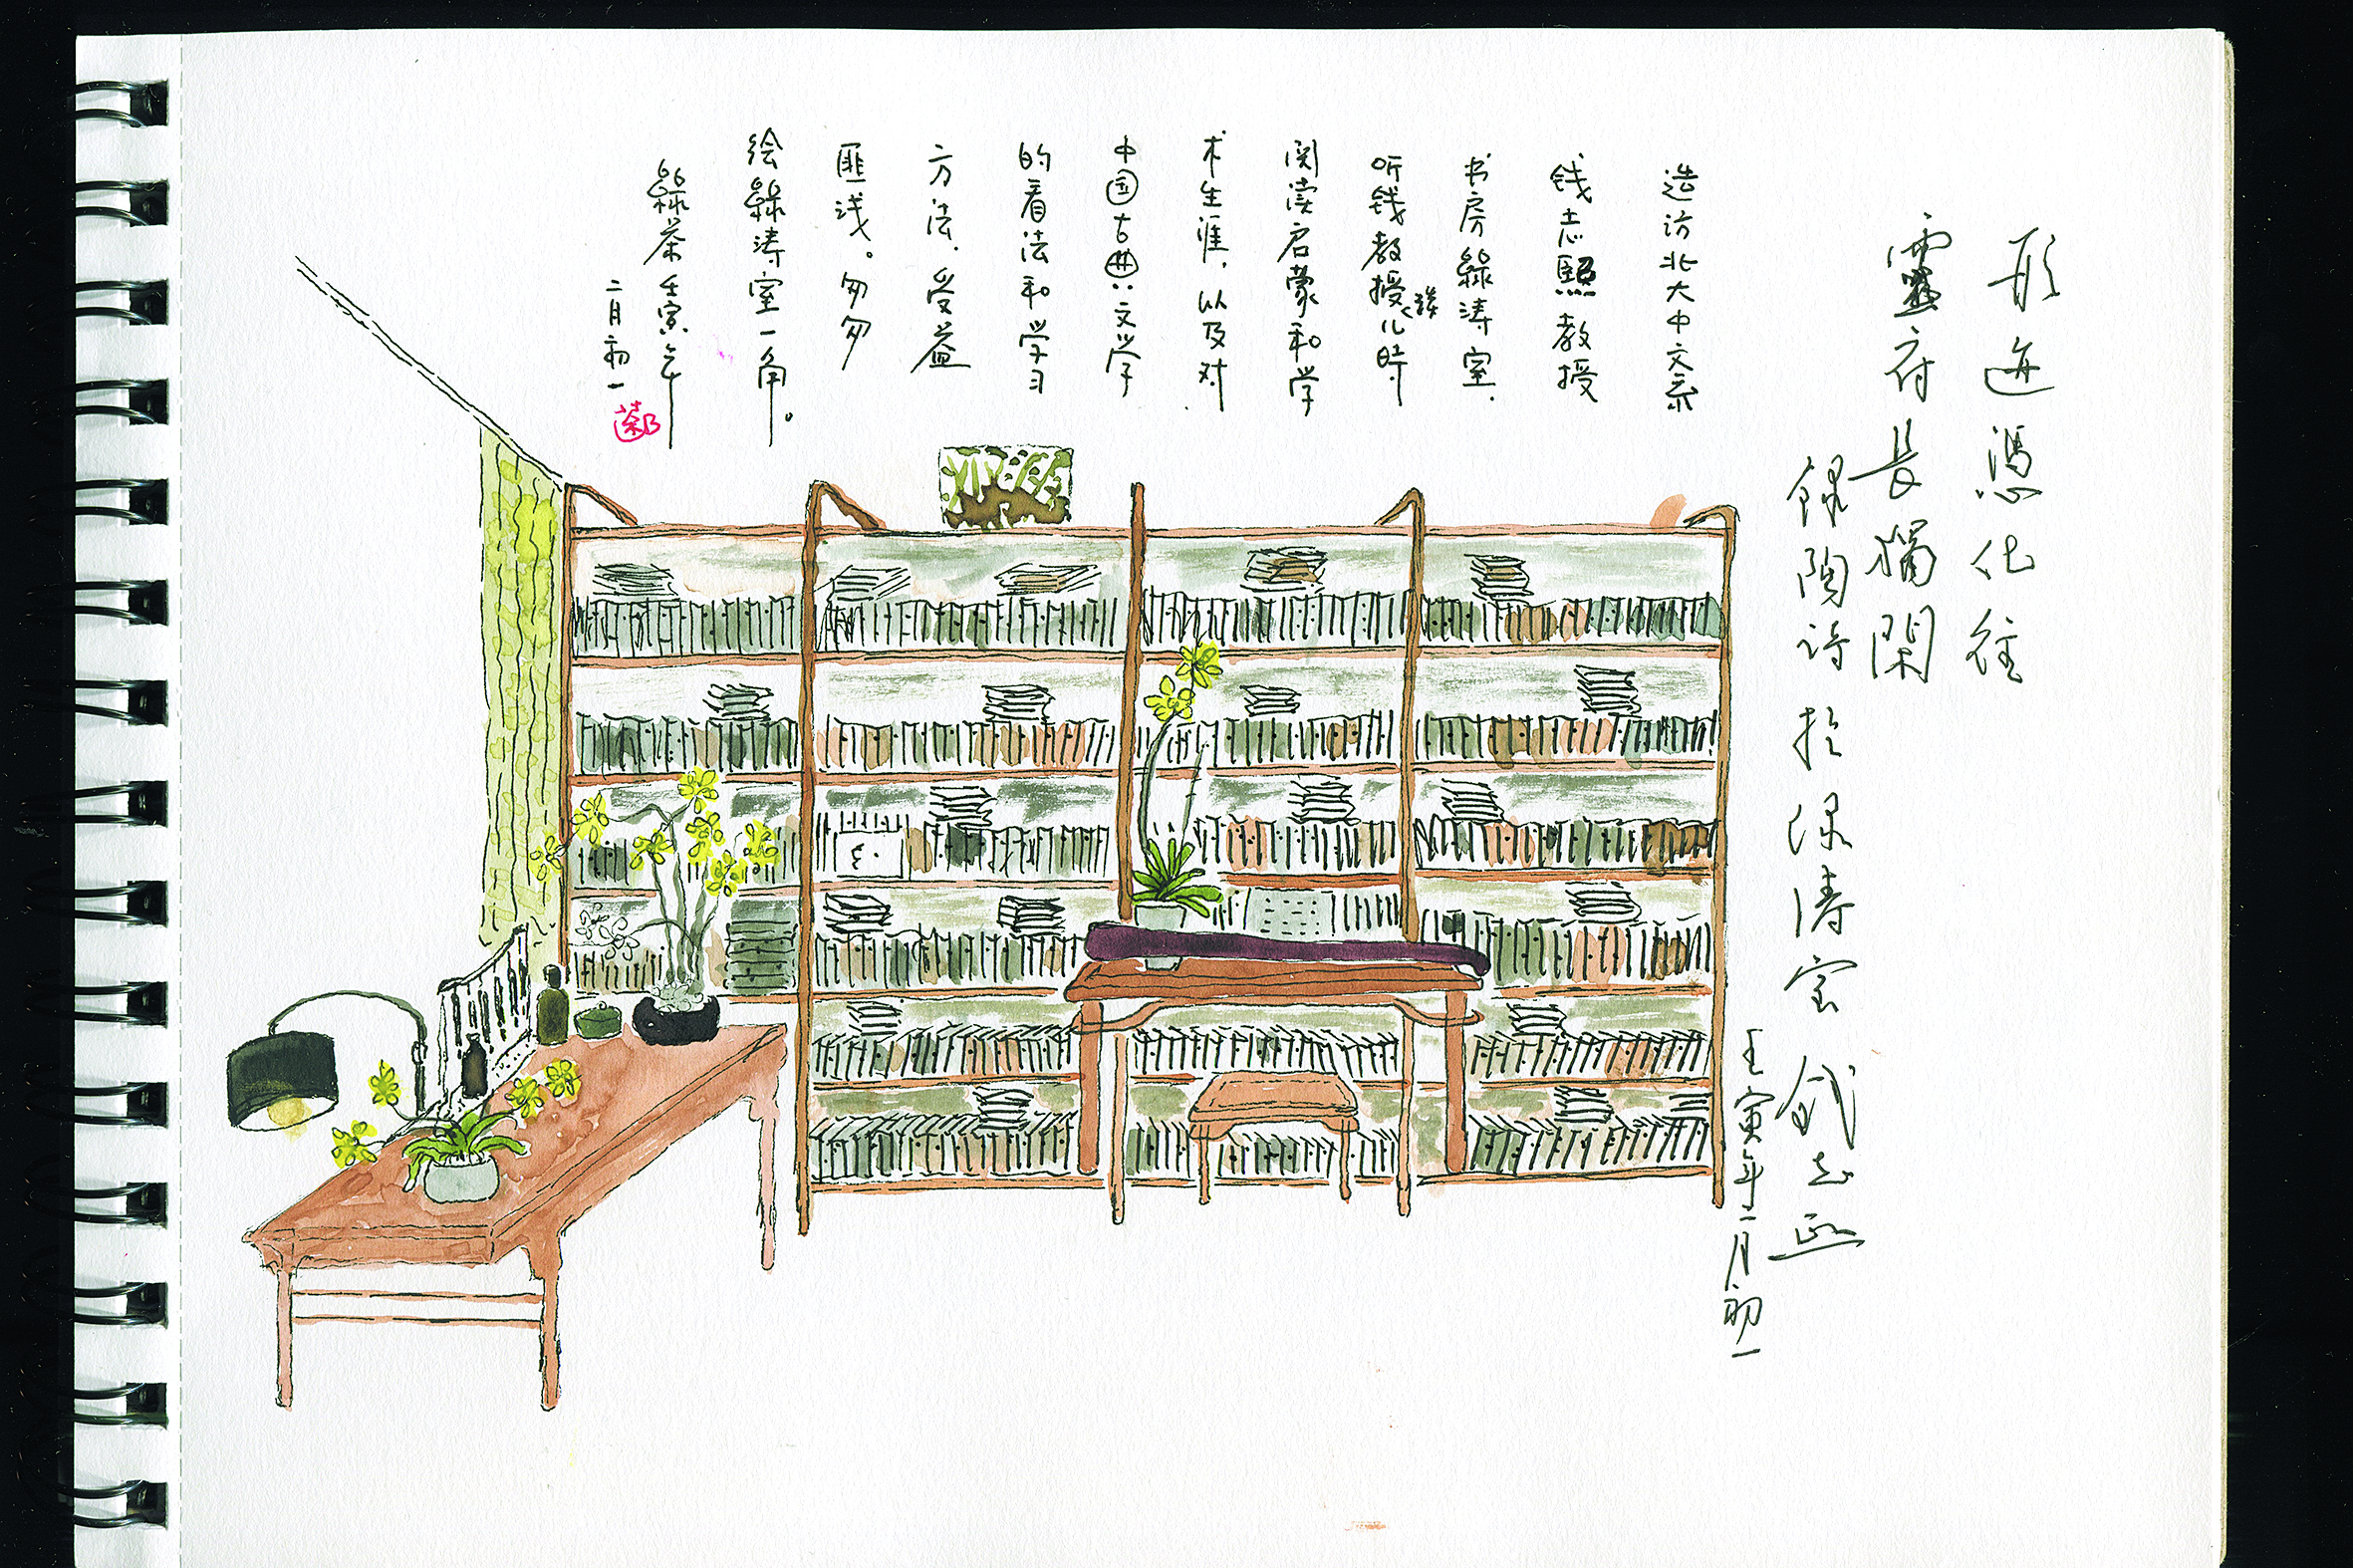 形迹憑化往
靈府長獨閑
録陶诗扵绿涛室 钱志熙
壬寅年二月初一
造访北大中文系
钱志熙教授
书房綠涛室.
听钱教授谈儿时
阅读启蒙和学
术生涯,以及对
中国古典文学
的看法和学习
方法,受益
匪浅。匆匆
绘綠涛室一角。
綠茶 壬寅年
二月初一